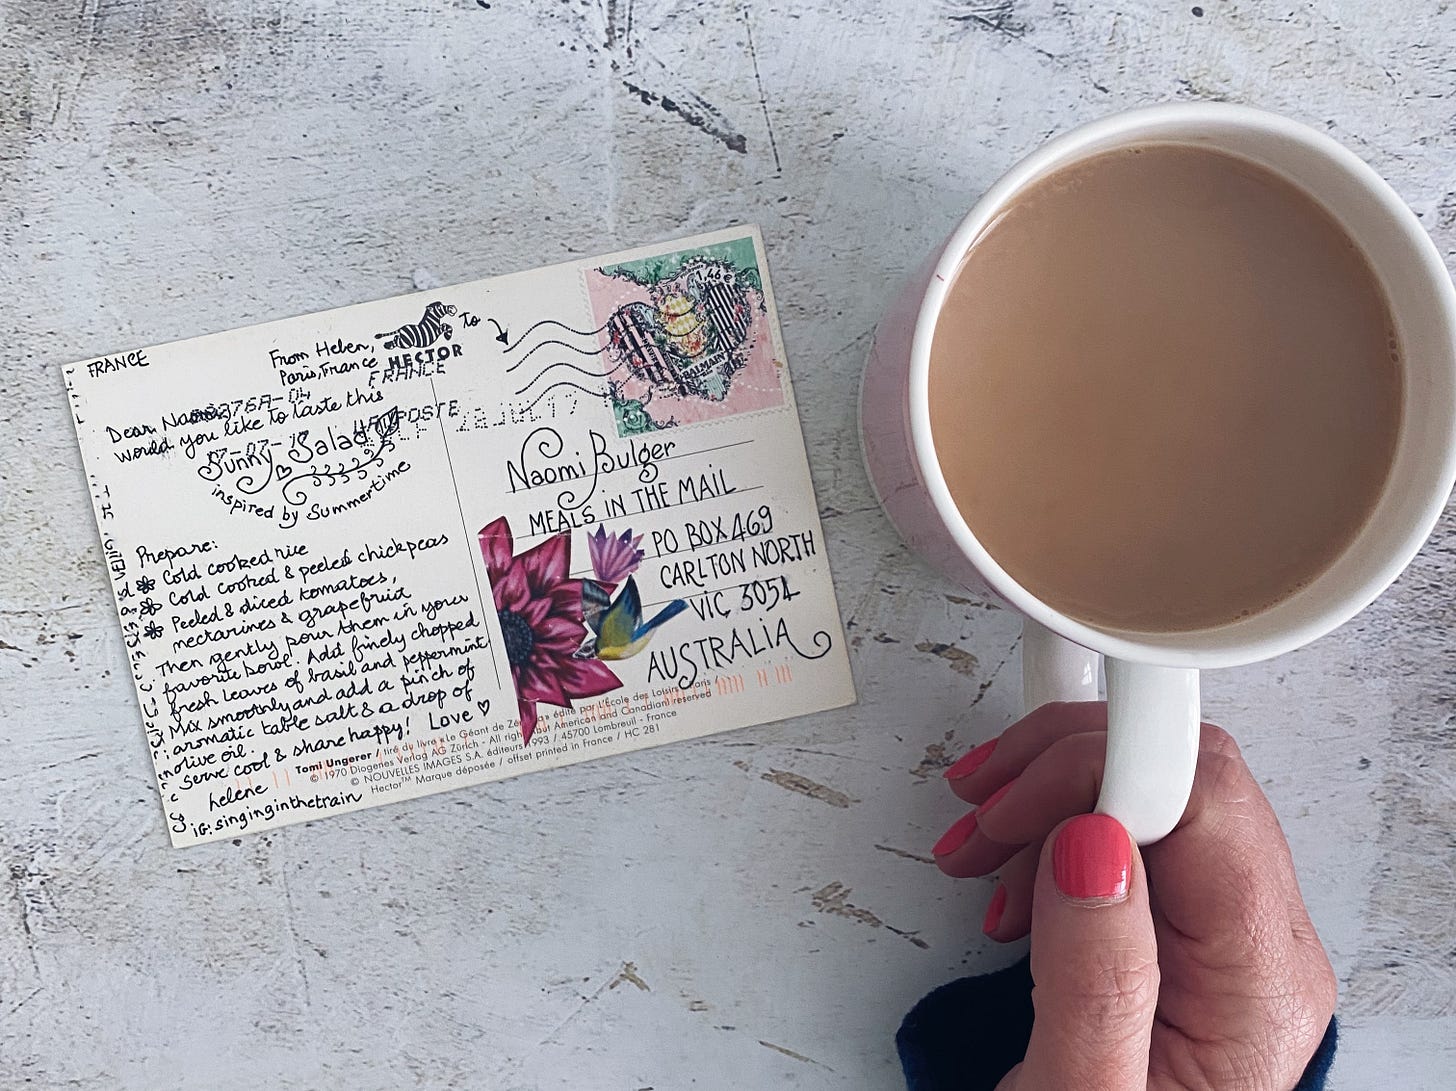 FRANCE
From Helen,
Paris, France
to
HECTOR
FRANCE
LA POSTE
28.JUL 17
1,46€
BALMAIN
Dear Naomi
would you like to taste this
Sunny Salad
inspired by Summertime
Prepare:
Cold cooked rice
Cold cooked & peeled chickpeas
Peeled & diced tomatoes,
nectarines & grapefruit
Then gently pour them in your
favorite bowl. Add finely chopped
fresh leaves of basil and peppermint
Mix smoothly and add a pinch of
aromatic table salt & a drop of
olive oil.
Serve cool & share happy! Love
helene
IG: singinginthetrain
Naomi Bulger
MEALS iN THE MAiL
PO BOX 469
CARLTON NORTH
ViC 3054
AUSTRALiA
Tomi Ungerer / tiré du livre «Le Géant de édité par L'École des Loisirs Paris
© 1970 Diogenes Verlag AG Zürich - All rights American and Canadian) reserved
© NOUVELLES IMAGES S.A. éditeurs 1993 / 45700 Lombreuil - France
Hector™ Marque déposée / offset printed in France / HC 281